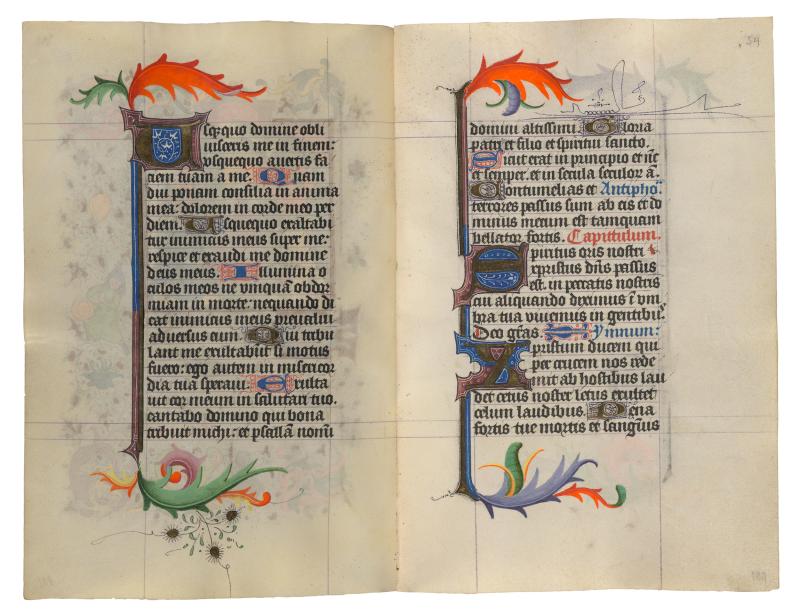 Usq̄quo domine obli
uisceris me in finem:
vsquequo auertis fa
ciem tuam a me. Quam
diu ponam consilia in anima
mea: dolorem in corde meo per
diem. Usquequo exaltabi
tur inimicus meus super me:
respice et exaudi me domine
deus meus. Illumina o
culos meos ne vnquam obdor
miam in morte: nequando di
cat inimicus meus preualui
aduersus eum. Qui tribu
lant me exultabūt si motus
fuero: ego autem in misericor
dia tua speraui. Exulta
uit cor meum in salutari tuo.
cantabo domino qui bona
tribuit michi: et psallā nomīi
54
domini altissimi. Gloria
patri et filio et spiritui sancto.
Sicut erat in principio et nūc
et semper. et in secula seculor ā.
Contumelias et Antipho:
terrores passus sum ab eis et do
minus mecum est tamquam
bellator fortis. Capittulum.
Spiritus oris nostri
xpristus dn̄s passus
est. in peccatis nostris
cui aliquando diximus ī vm
bra tua viuemus in gentibꝰ.
Deo grās. Ymnum:
Xpristum ducem qui
per crucem nos rede
mit ab hostibus lau
det cetus noster letus exultet
celum laudibus. Pena
fortis tue mortis et sanguīs